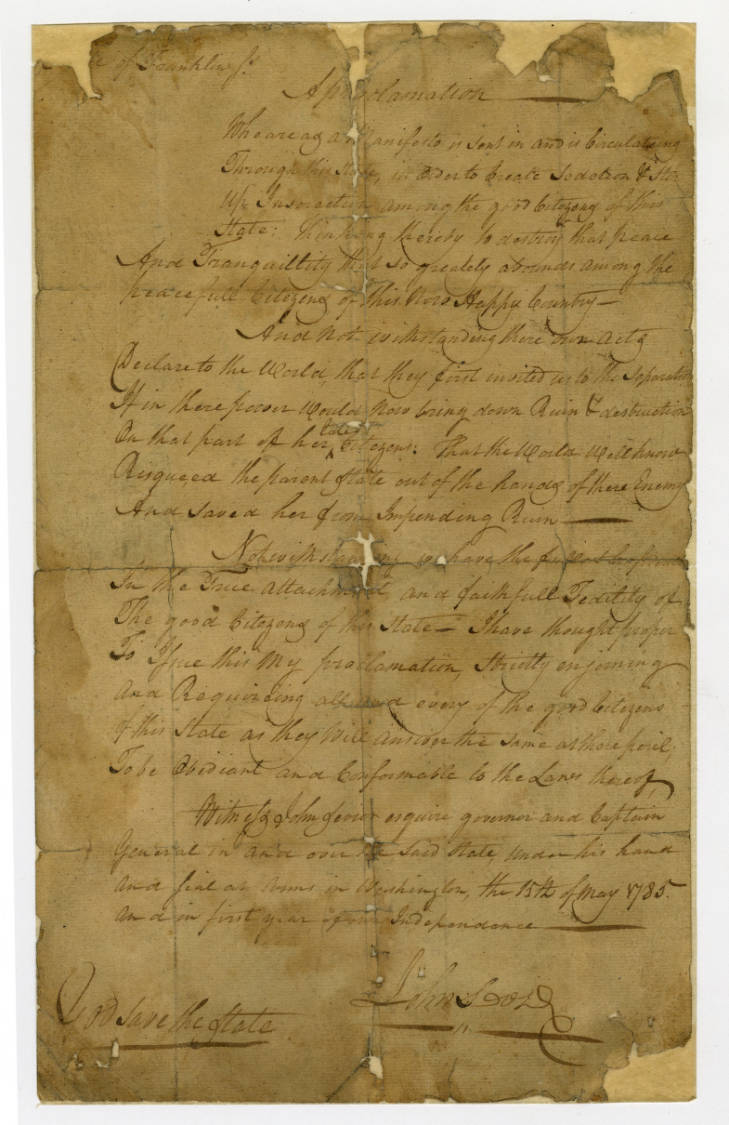 of Franklin Js
A proclamation
Whareas a Manifesto is sent in and is Circulateing
Through this State, in Order to Create Sedetion & Stir
Up Insorection among the good Citizens of this
State: thinking thereby to destroy that peace
And Tranquillity that so greately abounds among the
peacefull Citizens of this Now Happy Country—
And Not withstanding there own Acts
Declare to the World, that they first invited us to the Separation
If in there power Would Now bring down Ruin & destruction
On that part of her late Citizens: That the World Well know
Risqueed the parent State out of the hands of there Enemy
And saved her from Impending Ruin
Notwithstanding we have the fullest
In the True attachment and faithfull Fedility of
The good Citizens of this State— I have thought proper
To Issue this My proclamation, Strictly enjoining
And Requireing all and every of the good Citizens
of this State as they Will answer the same at there peril,
To be Obidiant and Conformable to the Laws thereof,
Witness John Sevier esquire governor and Captain
General in and over the said State, under his hand
And seal at arms in Washington, the 15th of May 1785.
And in first year of our Independance
John Sevier
God save the State